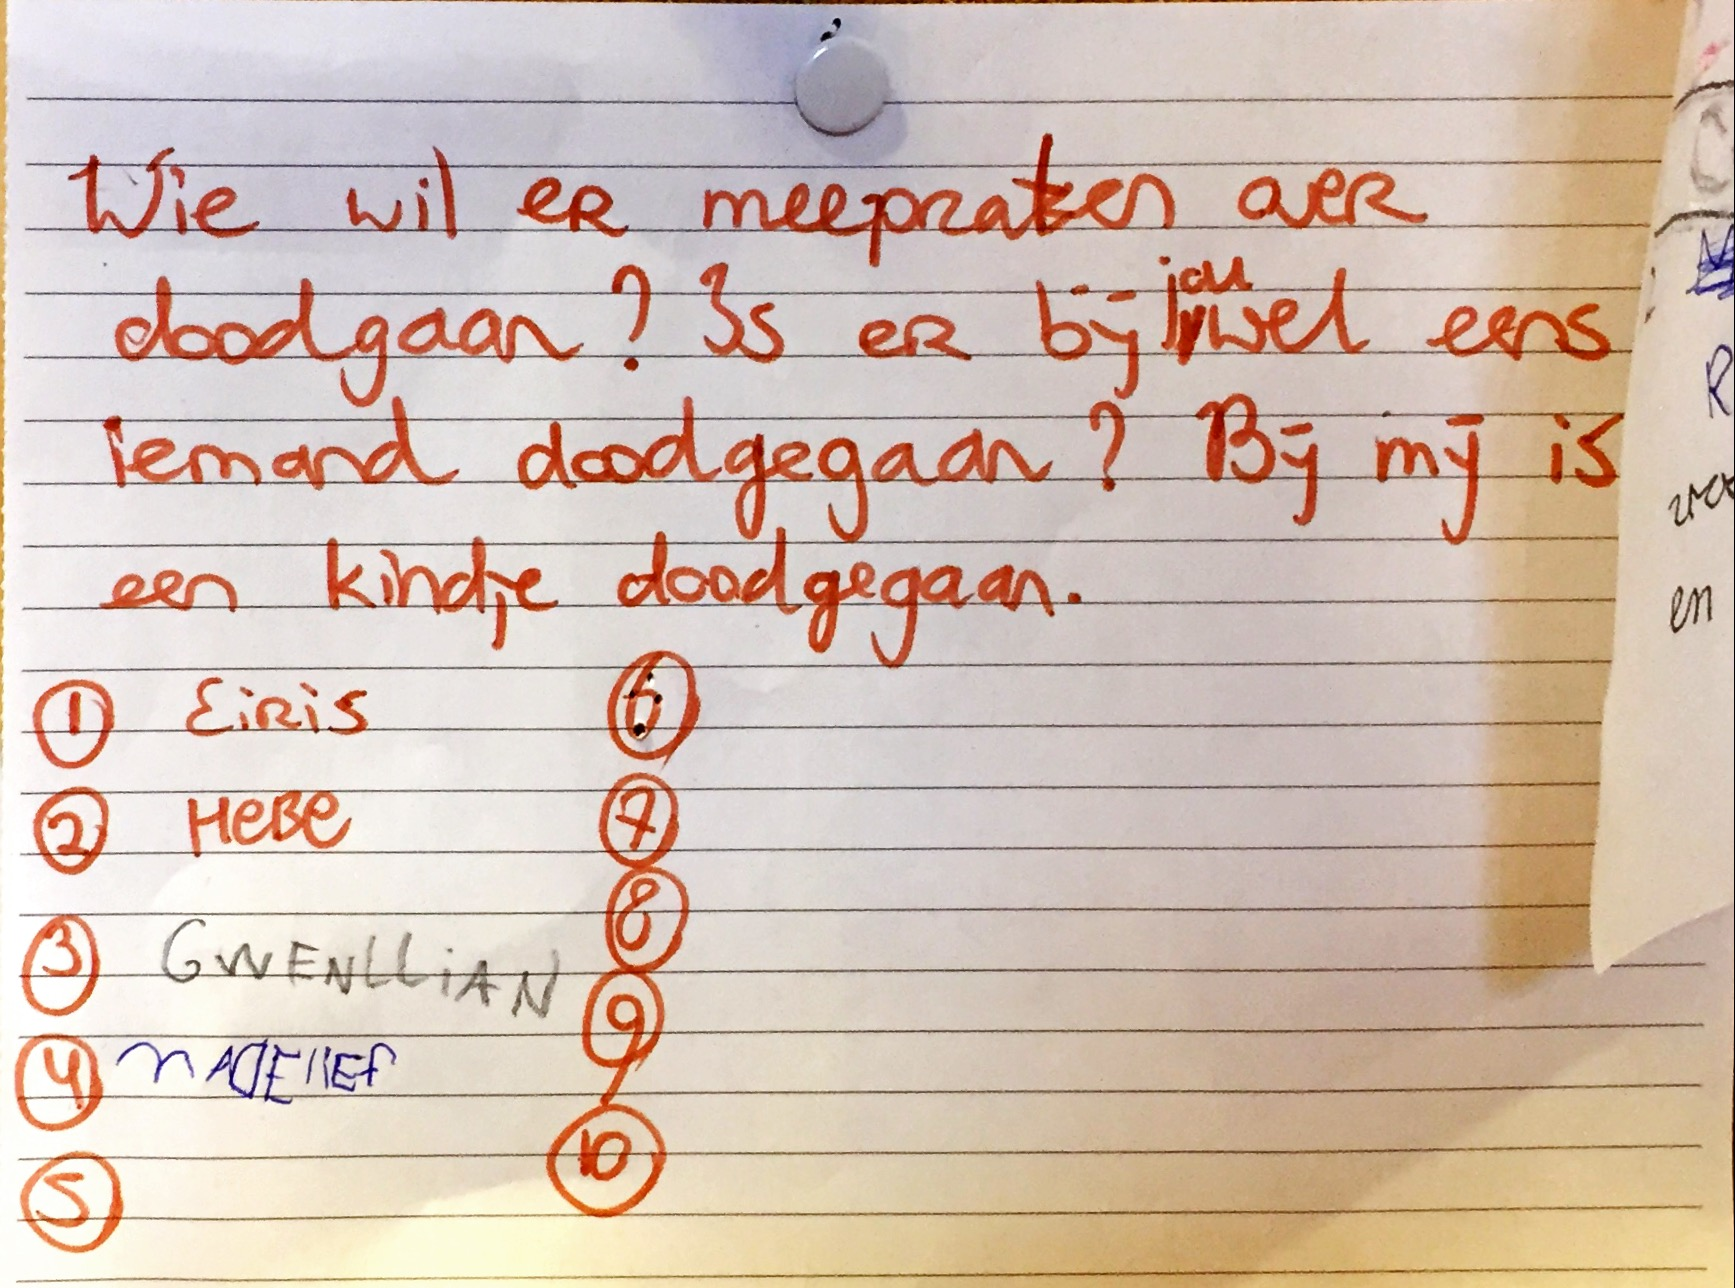 Wie wil er meepraten over
doodgaan? Is er bij jou wel eens
iemand doodgegaan? Bij mij is
een kindje doodgegaan.
1 Eiris
2 HeBe
3 GWENLLiAN
4 MADELIEF
5
6
7
8
9
10
R
en